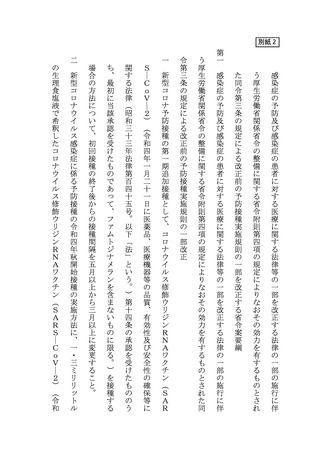 別紙２
感染症の予防及び感染症の患者に対する医療に関する法律等の一部を改正する法律の一部の施行に伴
う厚生労働省関係省令の整備に関する省令附則第四項の規定によりなおその効力を有するものとされ
た同令第三条の規定による改正前の予防接種実施規則の一部を改正する省令案要綱
第一　感染症の予防及び感染症の患者に対する医療に関する法律等の一部を改正する法律の一部の施行に伴
う厚生労働省関係省令の整備に関する省令附則第四項の規定によりなおその効力を有するものとされた同
令第三条の規定による改正前の予防接種実施規則の一部改正
一　新型コロナ予防接種の第一期追加接種として、コロナウイルス修飾ウリジンＲＮＡワクチン（ＳＡＲ
Ｓ－ＣｏＶ－２）（令和四年一月二十一日に医薬品、医療機器等の品質、有効性及び安全性の確保等に
関する法律（昭和三十五年法律第百四十五号。以下「法」という。）第十四条の承認を受けたもののう
ち、最初に当該承認を受けたものであって、ファムトジナメランを含まないものに限る。）を接種する
場合の方法について、初回接種の終了後からの接種間隔を五月以上から三月以上に変更すること。
二　新型コロナウイルス感染症に係る予防接種の令和四年秋開始接種の実施方法に、一・三ミリリットル
の生理食塩液で希釈したコロナウイルス修飾ウリジンＲＮＡワクチン（ＳＡＲＳ－ＣｏＶ－２）（令和